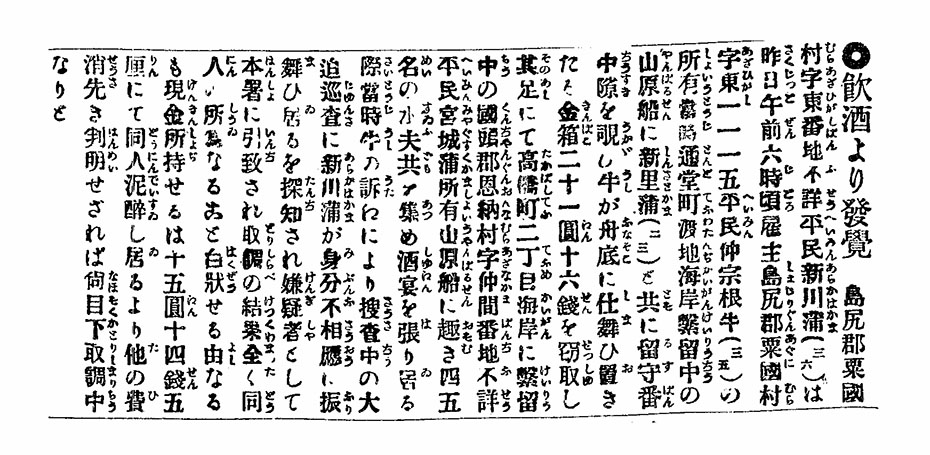 ◉飮酒より發覺　島尻郡粟國
村字東番地不詳平民新川蒲(三六)は
昨日午前六時頃雇主島尻郡粟國村
字東一一一五平民仲宗根牛(三五)の
所有當時通堂町渡地海岸繫留中の
山原船に新里蒲(二三)と共に留守番
中隙を覗し牛が舟底に仕舞ひ置き
たる金箱二十一圓十六錢を窃取し
其足にて高橋町二丁目海岸に繫留
中の國頭郡恩納村字仲間番地不詳
平民宮城蒲所有山原船に趣き四五
名の水夫共を集め酒宴を張り居る
際當時牛の訴わにより搜査中の大
追巡査に新川蒲が身分不相應に振
舞ひ居るを探知され嫌疑者として
本署に引致され取調の結果全く同
人の所爲なるおと白狀せる由なる
も現金所持せるは十五圓十四錢五
厘にて同人泥醉し居るより他の費
消先き判明せざれば尙目下取調中
なりと